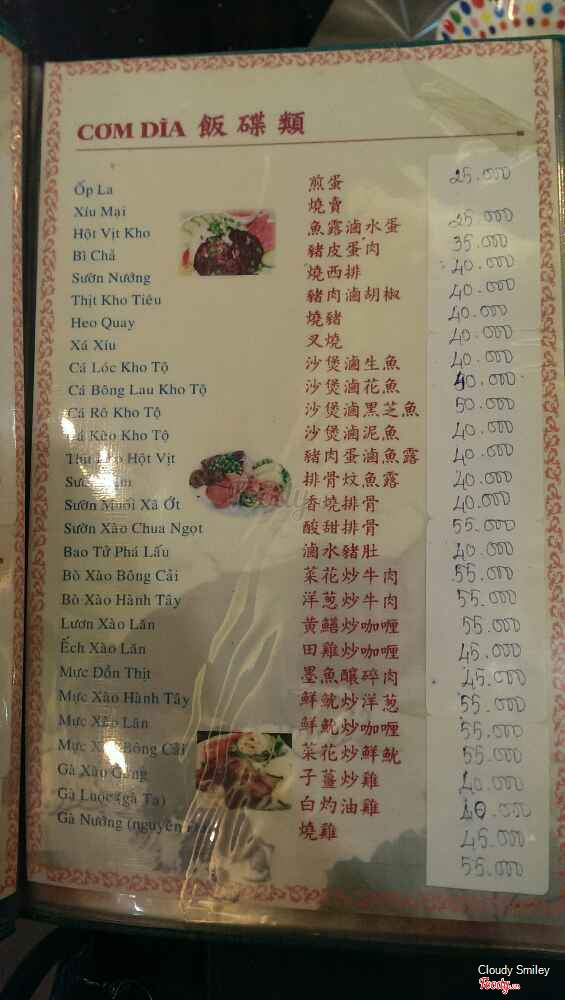 CƠM DĨA 飯碟類
Ốp La 煎蛋 25.000
Xíu Mại 燒賣 25.000
Hột Vịt Kho 魚露滷水蛋 35.000
Bì Chả 豬皮蛋肉 40.000
Sườn Nướng 燒西排 40.000
Thịt Kho Tiêu 豬肉滷胡椒 40.000
Heo Quay 燒豬 40.000
Xá Xíu 叉燒 40.000
Cá Lóc Kho Tộ 沙煲滷生魚 40.000
Cá Bông Lau Kho Tộ 沙煲滷花魚 50.000
Cá Rô Kho Tộ 沙煲滷黑芝魚 40.000
Kèo Kho Tộ 沙煲滷泥魚 40.000
Hột Vịt 豬肉蛋滷魚露 40.000
排骨炆魚露 40.000
Sườn Muối Xả Ớt 香燒排骨 55.000
Sườn Xào Chua Ngọt 酸甜排骨 40.000
Bao Tử Phá Lấu 滷水豬肚 55.000
Bò Xào Bông Cải 菜花炒牛肉 55.000
Bò Xào Hành Tây 洋葱炒牛肉 55.000
Lươn Xào Lăn 黄鱔炒咖喱 45.000
Ếch Xào Lăn 田雞炒咖喱 45.000
Mực Dồn Thịt 墨魚釀碎肉 55.000
Mực Xào Hành Tây 鮮魷炒洋葱 55.000
Mực Xào Lăn 鮮魷炒咖喱 55.000
Mực Xào Bông Cải 菜花炒鮮魷 40.000
Gà Xào Gừng 子薑炒雞 40.000
Gà Luộc (gà Ta) 白灼油雞 45.000
Gà Nướng (nguyên 燒雞 55.000
Foody
Cloudy Smiley
Foody.vn